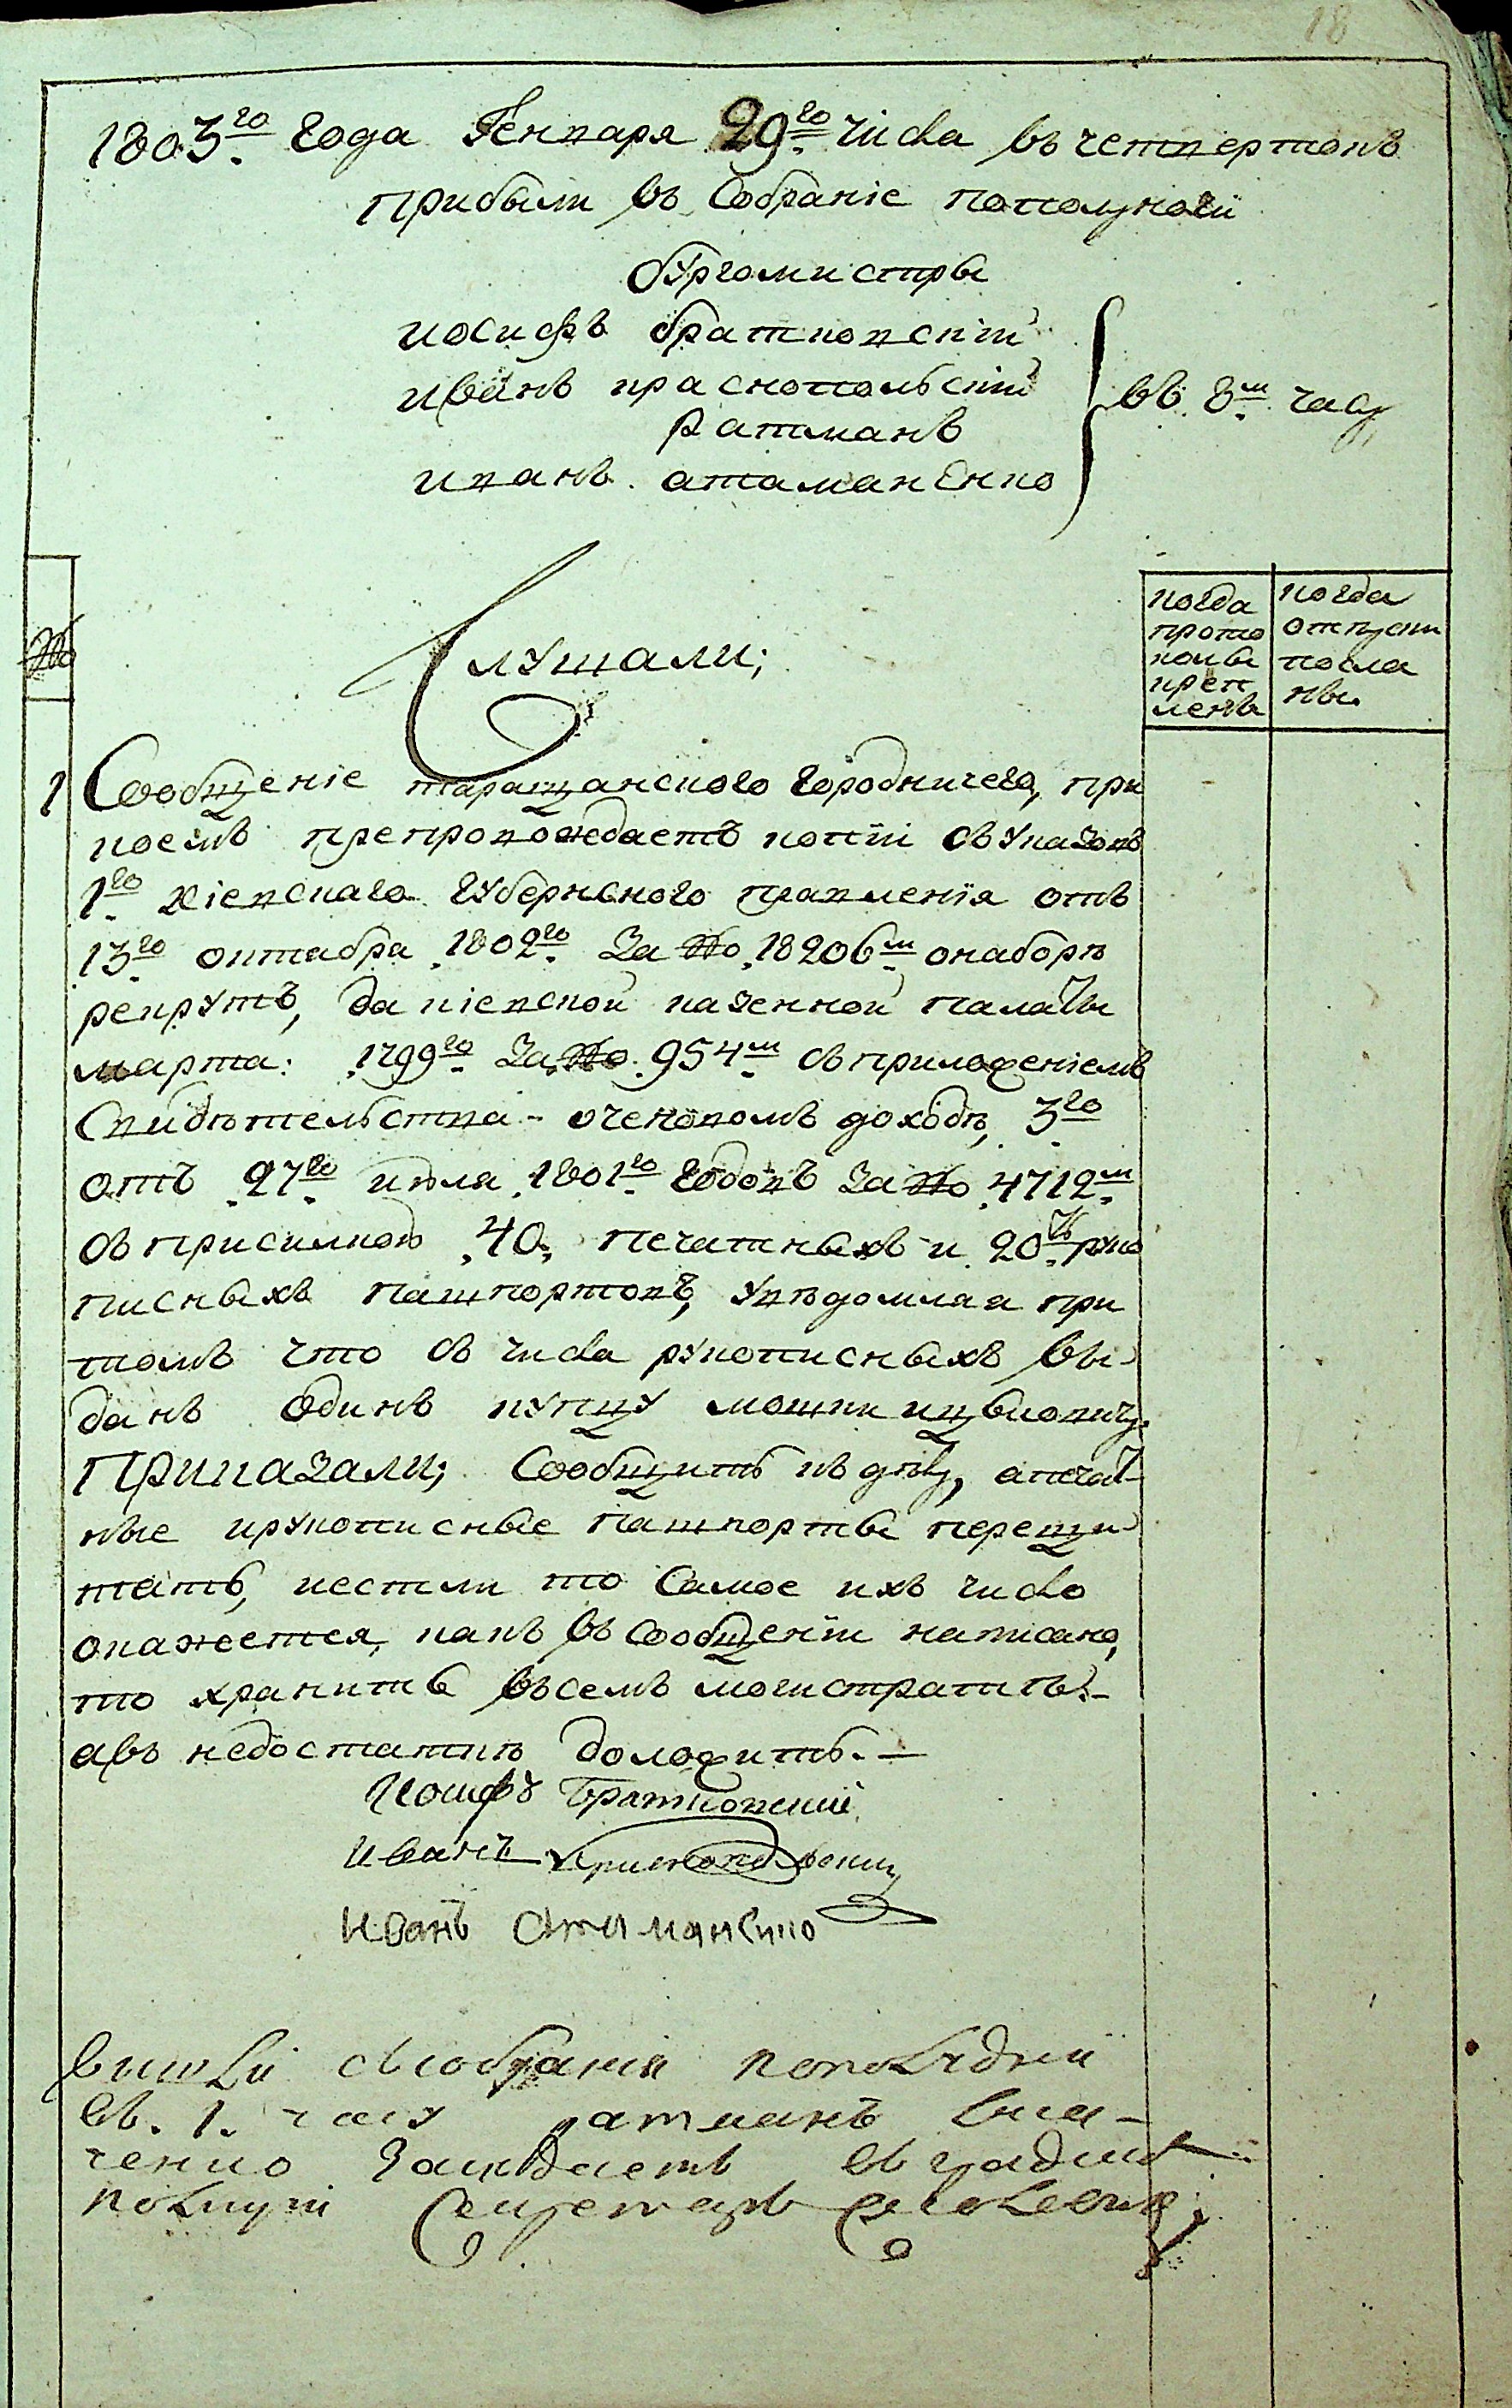 18
1803го года Генваря 29го числа въ четвертокъ
прибыли въ Собраніе пополуночи
бургомистры
иосифъ братковскій
иванъ краснопольскій
ратманъ
иванъ атаманенко
въ 8м часу
№
Слушали;
когда прото колы крепленъ
когда отпуски посла ны.
1 Сообщеніе таращанского городничего, при
коемъ препровождаетъ копіи съ указовъ
1го кіевского губернского правленія отъ
13го октабра 1802го За № 18206м онаборѣ
рекрутъ, да кіевской казенной палаты
марта: 1799го За № 954м съ приложеніемъ
Свидѣтельства - о доходѣ, 3го
отъ 27го июля 1801го годовъ За № 4712м
съ присилкою 40, печатныхъ и 20ть руко
писныхъ пашпортовъ, увѣдомляя при
томъ что съ числа рукописныхъ вы
данъ одинъ купцу мошки
Приказали; Сообщить къ дѣлу, апечат
ные ирукописные пашпорты перещи
тать, иестли то Самое ихъ число
окажется, какъ въ Сообщеніи написано,
то хранить въсемъ могистратить
авъ недостаткѣ доложить. —
Иосифъ Братковский
Иванъ
Иванъ Атаманенко
вишли съ собранія пополудній
въ. 1. часу ратманъ
ченко въ градской
поліціи Секретарь